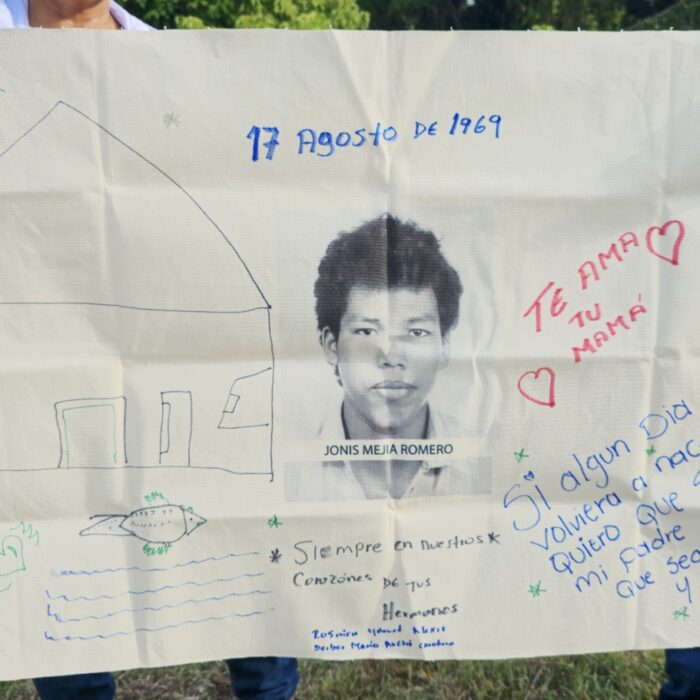 17 Agosto DE 1969
TE AMA
TU
MAMÁ
JONIS MEJIA ROMERO
Si algun Dia
volviera a nac
Quiero que s
mi padre
que sea
y
Siempre en nuestros
Corazónes DE tus
Hermanos
Alexis
Deiber Mario